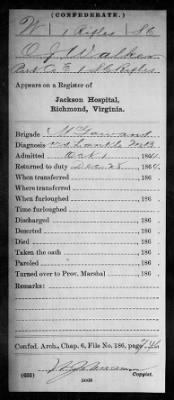 (CONFEDERATE.)
W 1 Rifles SC
O J Walker
Co E 1 S C Rifles
Appears on a Register of
Jackson Hospital,
Richmond, Virginia.
Brigade McGowans
Diagnosis
Admitted Oct 1, 1864.
Returned to duty Dec 28, 1864.
When transferred, 186 .
Where transferred
When furloughed, 186 .
Time furloughed
Discharged, 186 .
Deserted, 186 .
Died, 186 .
Taken the oath, 186 .
Paroled, 186 .
Turned over to Prov. Marshal, 186 .
Remarks:
Confed. Arch., Chap. 6, File No. 186, page 246
(635)
Copyist.